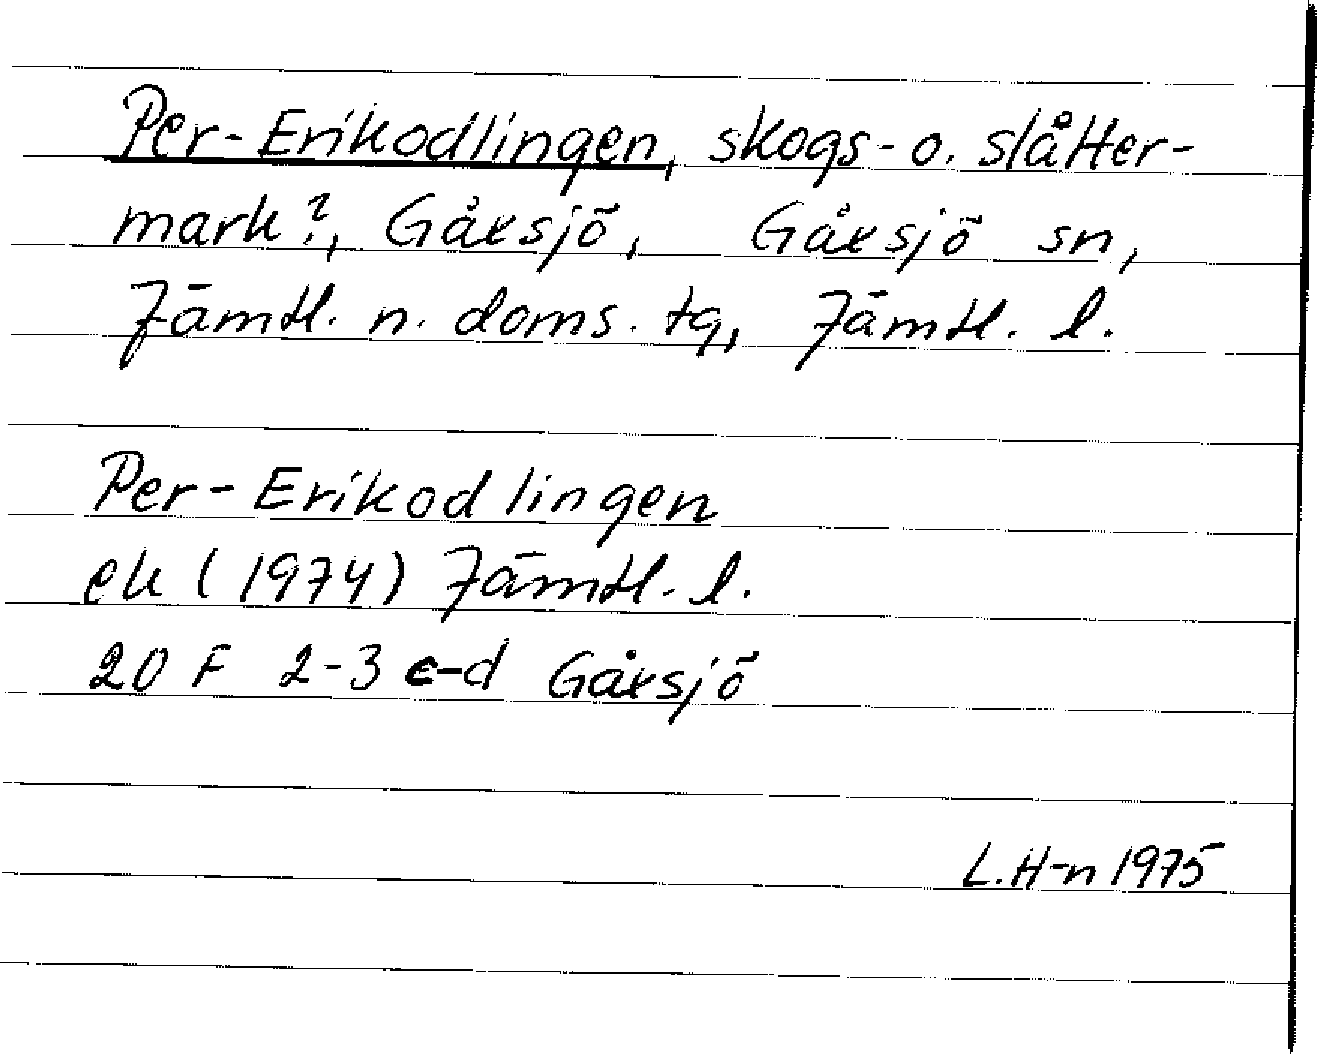 Per-Erikodlingen, skogs- o. slåtter-
mark?, Gåxsjö, Gåxsjö sn,
Jämtl. n. doms. tg, Jämtl. l.
Per-Erikodlingen
ek (1974) Jämtl. l.
20 F 2-3 c-d Gåxsjö
L.H-n 1975